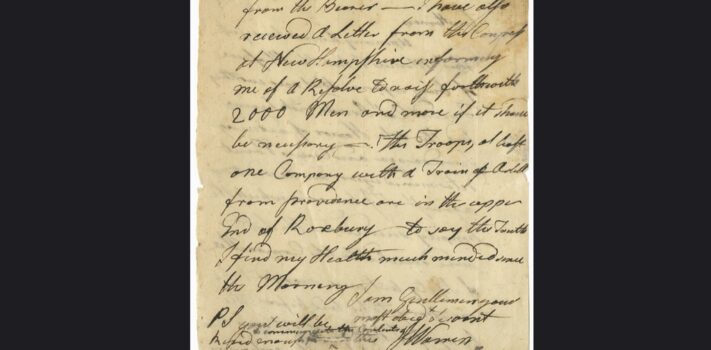 from the Bearer — I have also
received a Letter from the Congress
at New Hampshire informing
me of a Resolve to raise forthwith
2000 Men and more if it should
be necessary —. The Troops, at least
one Company with a Train of Artill
from providence are in the upper
End of Roxbury to say the Truth
I find my Health much mended since
the Morning
I am Gentlemen your
most obedt Servant
J Warren
PS you will be
to communicate the Contents of
kind enough